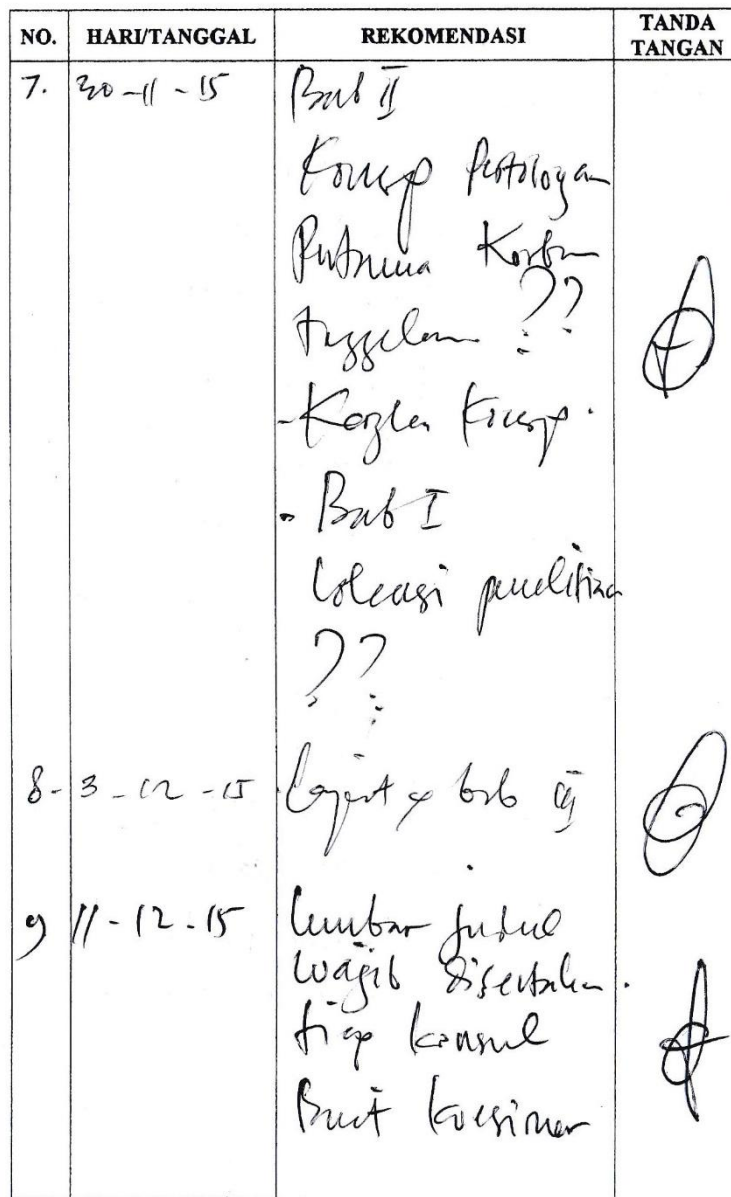 NO. HARI/TANGGAL REKOMENDASI TANDA TANGAN
7. 30-11-15 Bab II
Konsep Pertolongan
Pertama Korban
tenggelam ??
- Konsep
- Bab I
Lokasi penelitian
??
8- 3-12-15 Lanjut bab III
9 11-12-15 lembar judul
wajib disertakan.
tiap konsul
Buat kuesioner